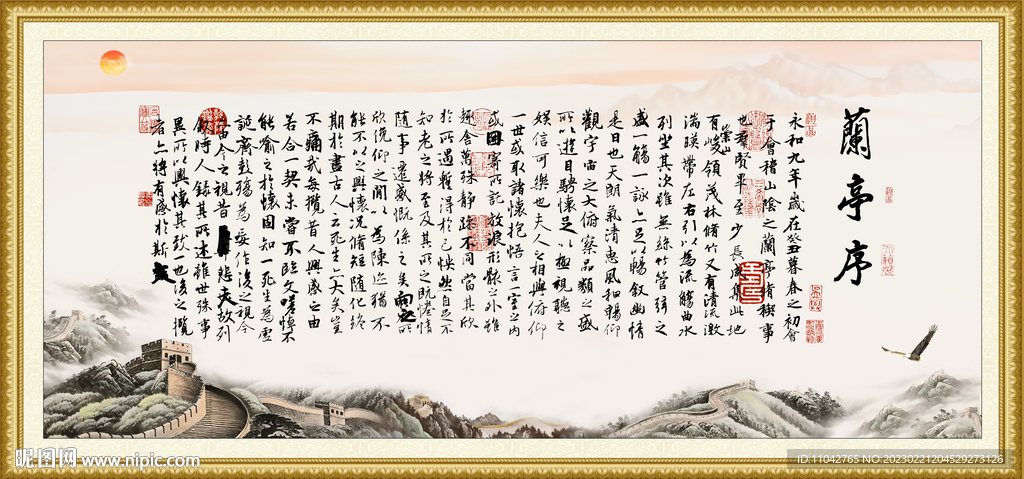 蘭亭序
永和九年歲在癸丑暮春之初會
于會稽山陰之蘭亭脩稧事
也羣賢畢至少長咸集此地
有崇山峻領茂林脩竹又有清流激
湍暎帶左右引以為流觴曲水
列坐其次雖無絲竹管弦之
盛一觴一詠亦足以暢敘幽情
是日也天朗氣清惠風和暢仰
觀宇宙之大俯察品類之盛
所以遊目騁懷足以極視聽之
娛信可樂也夫人之相與俯仰
一世或取諸懷抱悟言一室之內
或因寄所託放浪形骸之外雖
趣舍萬殊靜躁不同當其欣
於所遇暫得於己怏然自足不
知老之將至及其所之既惓情
隨事遷感慨係之矣向之所
欣俛仰之閒以為陳迹猶不
能不以之興懷況脩短隨化終
期於盡古人云死生亦大矣豈
不痛哉每攬昔人興感之由
若合一契未嘗不臨文嗟悼不
能喻之於懷固知一死生為虛
誕齊彭殤為妄作後之視今
亦由今之視昔悲夫故列
敘時人錄其所述雖世殊事
異所以興懷其致一也後之攬
者亦將有感於斯文
昵图网 www.nipic.com
ID:11042765 NO:20230221204529273126